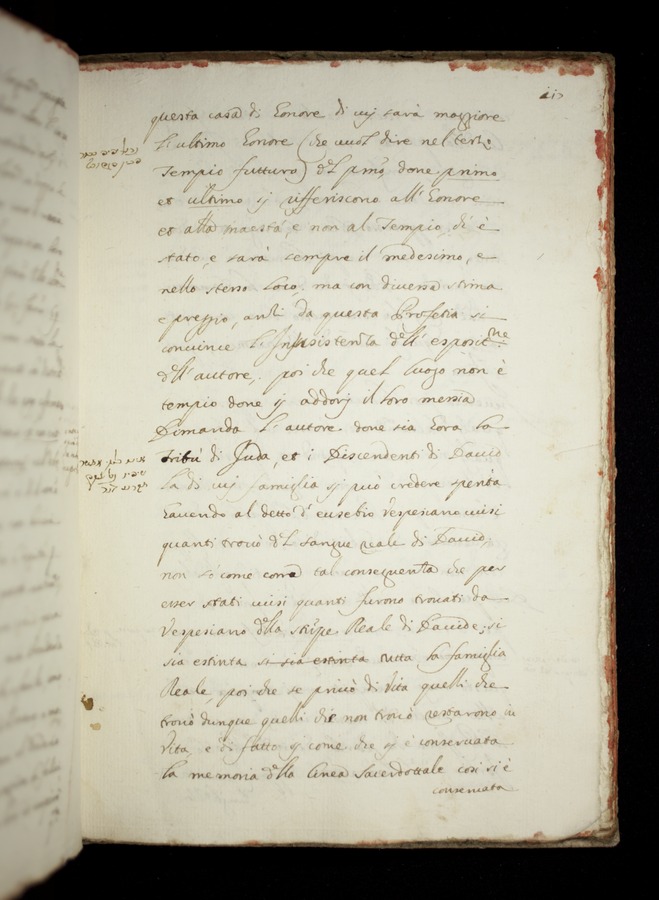 questa casa di Honore di cui sarà maggiore
l'ultimo Honore (che vuol dire nel terz:
Tempio futturo) del pmo, dove primo
et ultimo si rifferiscono all'Honore
et alla maestà, e non al Tempio, ch'è
stato, e sarà sempre il medesimo, e
nello stesso loco, ma con diversa stima
e preggio, anzi da questa Profetia si
convince l'Insussistenza dell'esposit.ne
dell'autore, poi che quel luogo non è
tempio dove si addorj il loro messia
Dimanda l'autore dove sia hora la
tribù di Juda, et i Discendenti di David
la di cui famiglia si può credere spenta
havendo al detto d'eusebio Vespesiano ucisi
quanti trovò del sangue reale di David,
non so come corra tal consequenza che per
esser stati ucisi quanti furono trovati da
Vespesiano della stirpe Reale di Davide, si
sia estinta si sia estinta tutta la famiglia
Reale, poi che se privò di vita quelli che
trovò dunque quelli che non trovò restarono in
vita, e di fatto si come che si è conservata
la memoria della linea Sacerdottale così si è
conservata